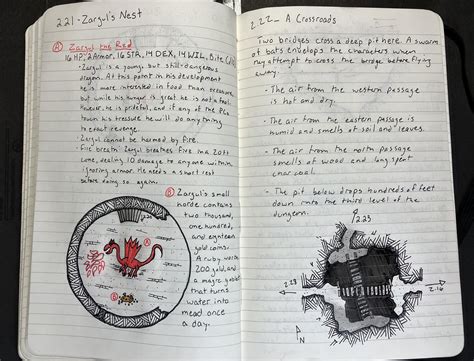 2.21 - Zargul's Nest
Ⓐ Zargul the Red
16 HP, 2 Armor, 16 STR, 14 DEX, 14 WIL, Bite
- Zargul is a young, but still dangerous
dragon. At this point in his development
he is more interested in food than treasure,
but while his hunger is great he is not a fool.
However, he is prideful, and if any of the PCs
touch his treasure he will do anything
to exact revenge.
- Zargul cannot be harmed by fire.
- Fire breath: Zargul breathes fire in a 20ft
cone, dealing 10 damage to anyone within,
ignoring armor. He needs a short rest
before doing so again.
Ⓑ Zargul's small
horde contains
two thousand,
one hundred,
and eighteen
gold coins.
A ruby worth
200 gold, and
a magic goblet
that turns
water into
mead once
a day.
2.20
A
B
2.22 - A Crossroads
Two bridges cross a deep pit here. A swarm
of bats envelops the characters when
they attempt to cross the bridge before flying
away.
- The air from the western passage
is hot and dry.
- The air from the eastern passage is
humid and smells of soil and leaves.
- The air from the north passage
smells of wood and long spent
charcoal.
- The pit below drops hundreds of feet
down into the third level of the
dungeon.
2.23
2.16
N